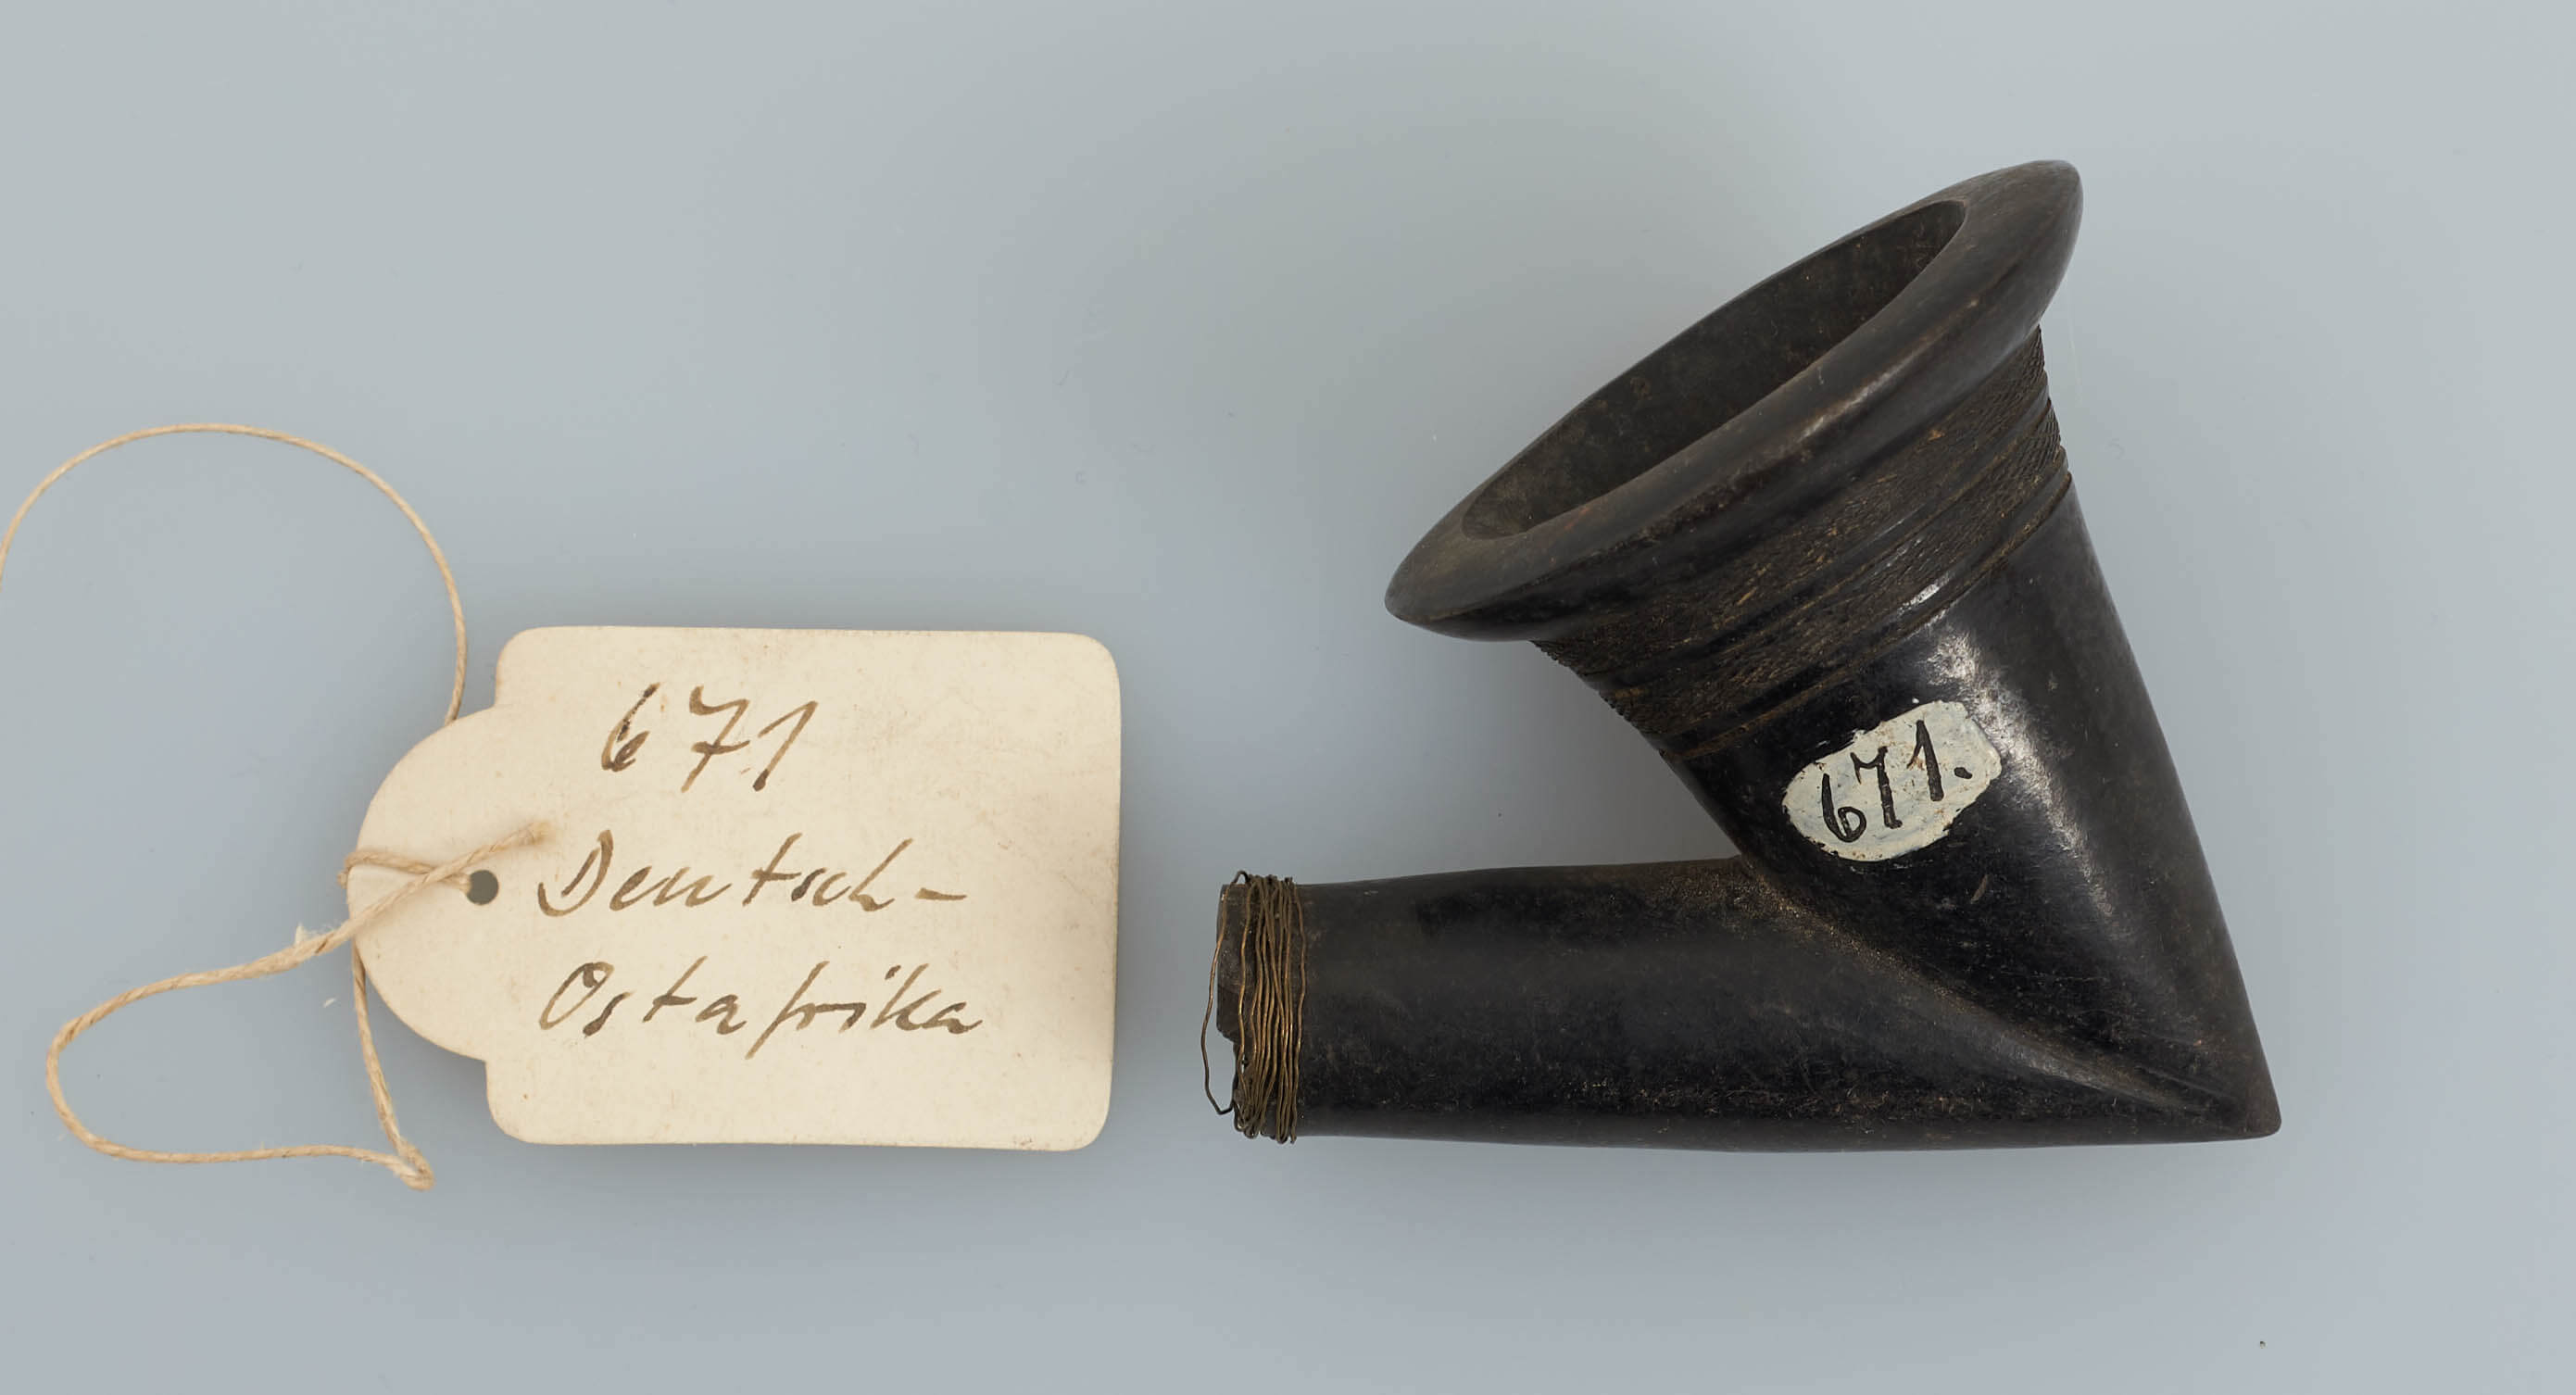 671
Deutsch-
Ostafrika
671.